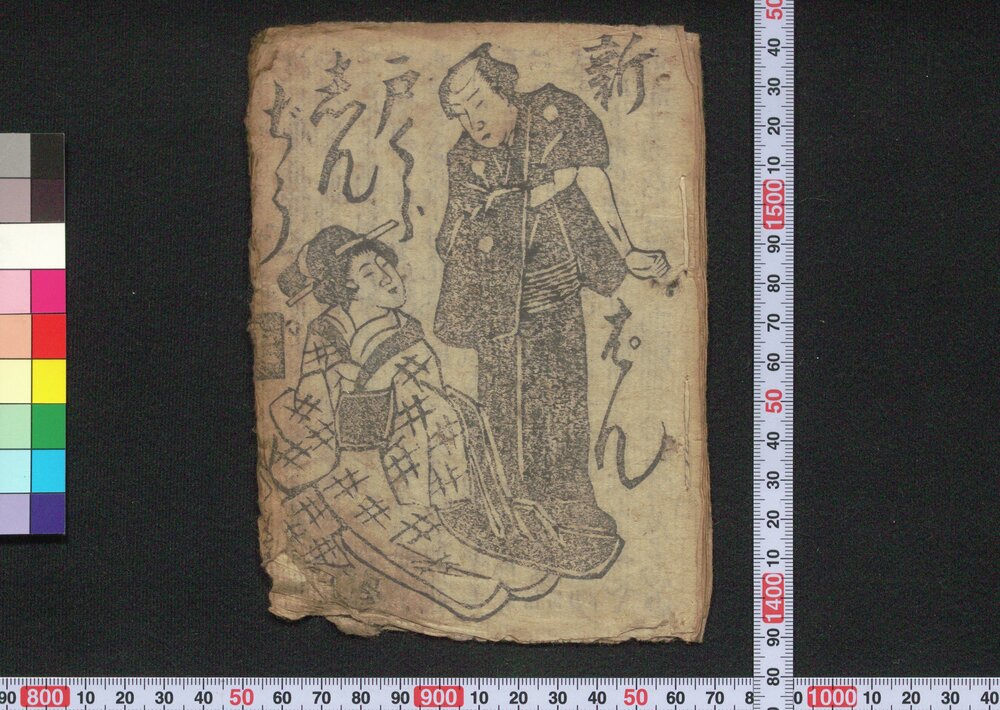 新
ぱん
戸
しん
ぢう
50
40
30
20
10
1500
90
80
70
60
50
40
30
20
10
1400
90
80
90 800 10 20 30 40 50 60 70 80 90 900 10 20 30 40 50 60 70 8
0 1000 10 20 30 40